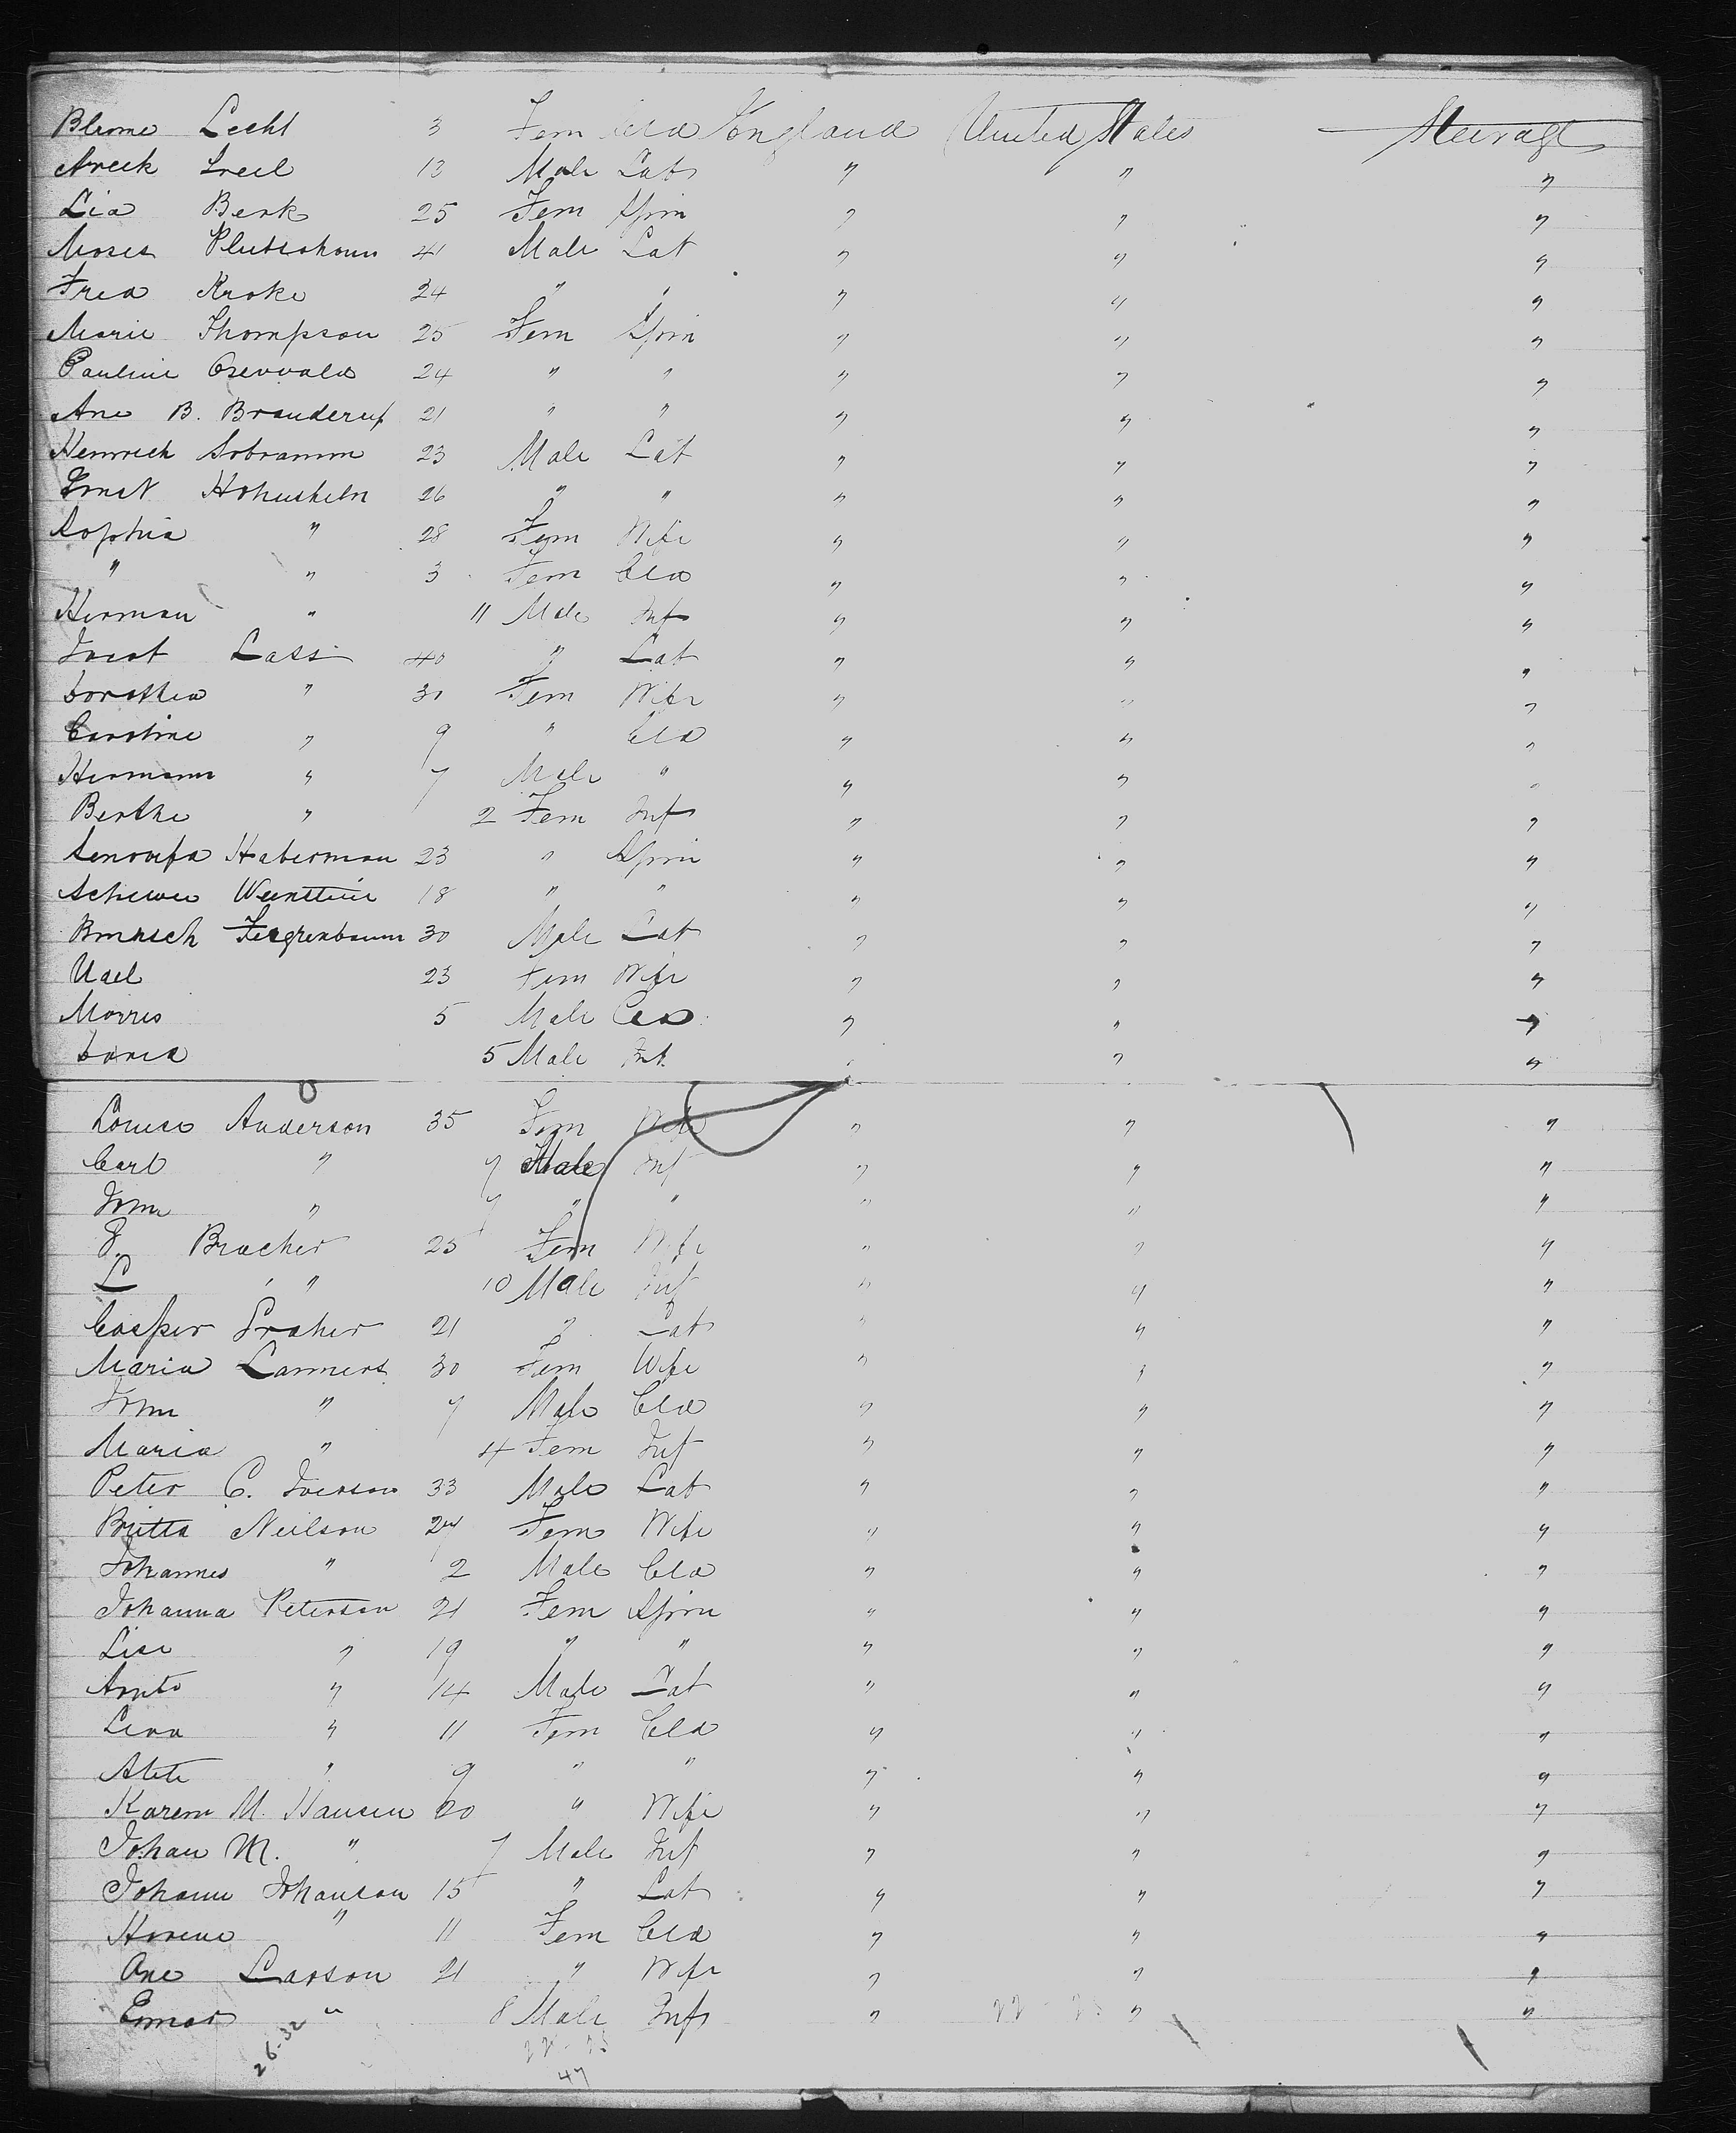 Blume Lecht 3 Fem Cld England United States Steerage
Areck Sreil 13 Male Lab " " "
Lia Berk 25 Fem Spin " " "
Moses 41 Male Lab " " "
Fred Kroke 24 " " " " "
Marie Thompson 25 Fem Spin " " "
Pauline Osewald 24 " " " " "
Ane B. Branderup 21 " " " " "
Heinrich Sobramm 23 Male Lab " " "
Ernst 26 " " " " "
Sophia " 28 Fem Wife " " "
" " 3 Fem Cld " " "
Herman " 11 Male Inf " " "
Joest Lass 40 " Lab " " "
Dorothea " 30 Fem Wife " " "
Caroline " 9 " Cld " " "
Hermann " 7 Male " " " "
Berthe " 2 Fem Inf " " "
Haberman 23 " Spin " " "
Weinstein 18 " " " " "
30 Male Lab " " "
23 Fem Wife " " "
Morris 5 Male Cld " " "
5 Male Inf " " "
Louise Anderson 35 Fem Wife " " "
Carl " 7 Male Inf " " "
John " 7 " " " " "
Bracher 25 Fem Wife " " "
L " 10 Male Inf " " "
Casper Praher 21 " Lab " " "
Maria Lammers 30 Fem Wife " " "
John " 7 Male Cld " " "
Maria " 4 Fem Inf " " "
Peter C. Iverson 33 Male Lab " " "
Britta Neilson 27 Fem Wife " " "
Johannes " 2 Male Cld " " "
Johanna Peterson 21 Fem Spin " " "
Lise " 19 " " " " "
" 14 Male Lab " " "
Lena " 11 Fem Cld " " "
Alete " 9 " " " " "
Karen M. Hansen 20 " Wife " " "
Johan M. " 7 Male Inf " " "
Johann Johanson 15 " Lab " " "
" 11 Fem Cld " " "
Ane Larson 21 " Wife " " "
" 8 Male Inf " " "
26-32
47